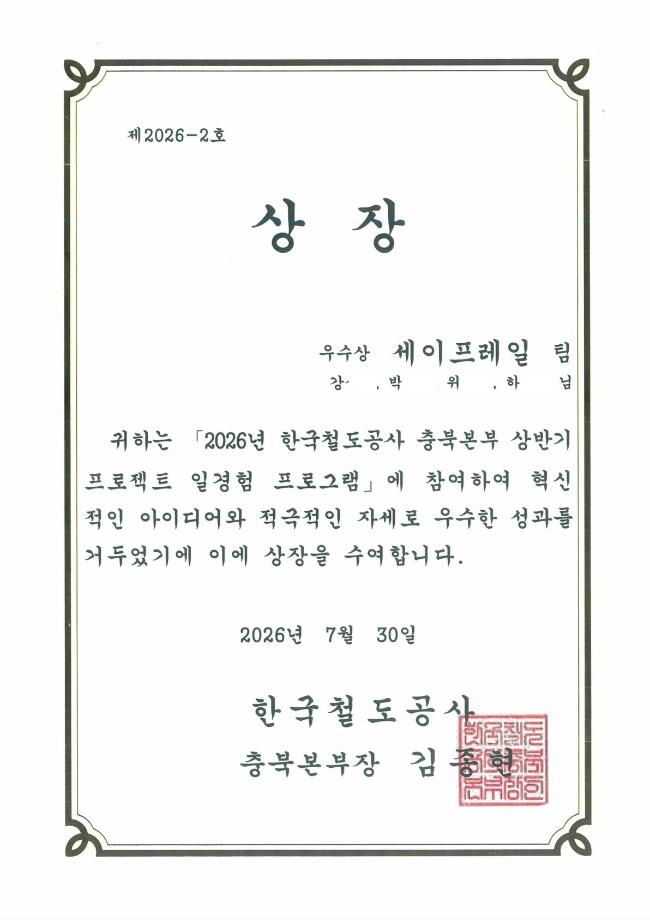 제2026-2호
상 장
우수상 세이프레일 팀
강 , 박 위 , 하 님
귀하는 「2026년 한국철도공사 충북본부 상반기
프로젝트 일경험 프로그램」에 참여하여 혁신
적인 아이디어와 적극적인 자세로 우수한 성과를
거두었기에 이에 상장을 수여합니다.
2026년 7월 30일
한국철도공사
충북본부장 김종현